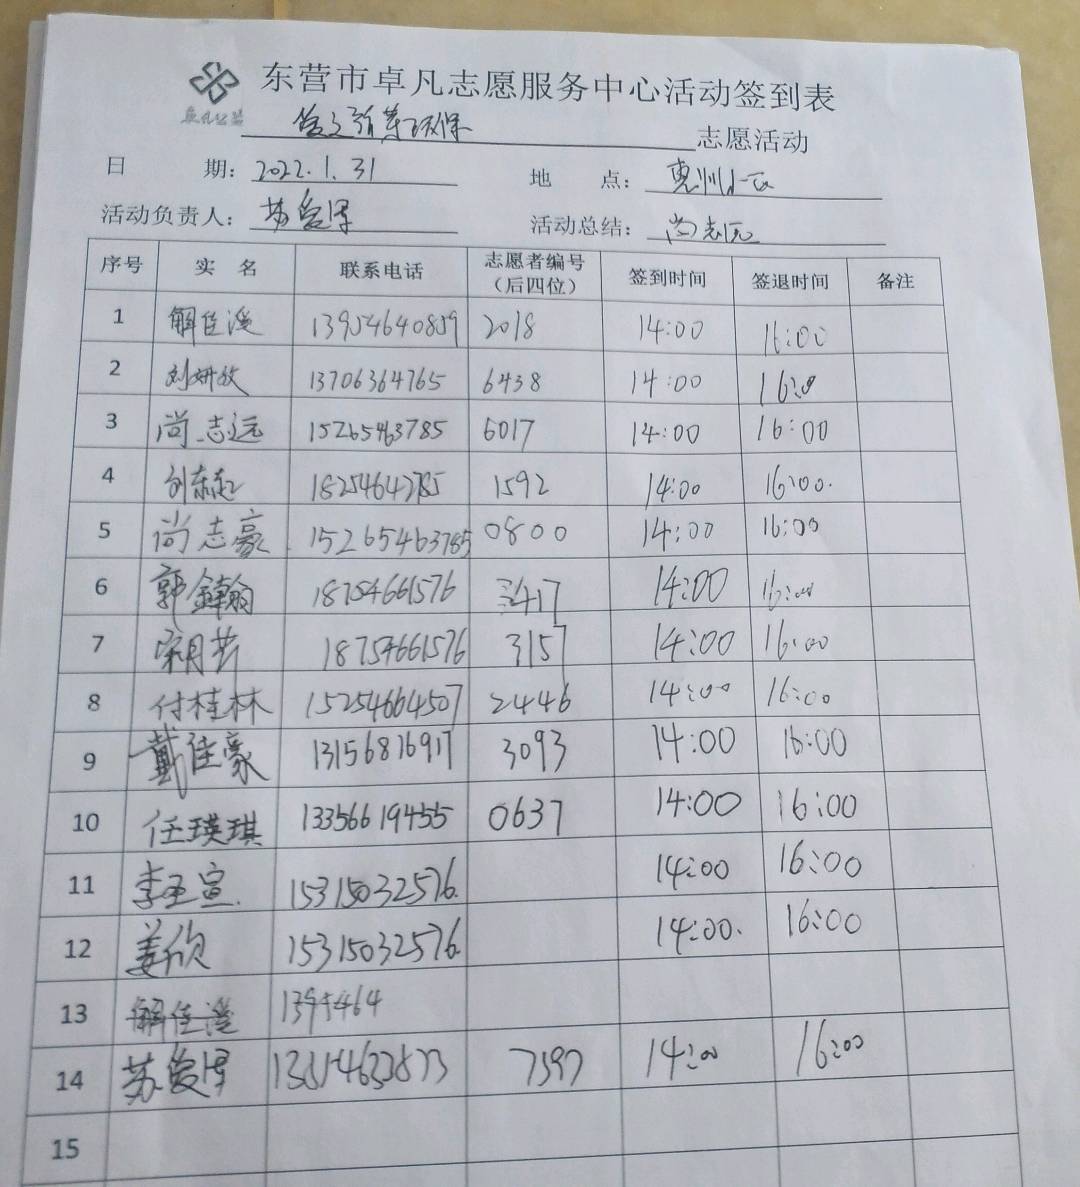 东营市卓凡志愿服务中心活动签到表
卓凡公益
环保 志愿活动
日 期：2022.1.31 地 点：惠州小区
活动负责人：苏俊泽 活动总结：尚志远
序号 实 名 联系电话 志愿者编号（后四位） 签到时间 签退时间 备注
1 解佳滢 13954640859 2018 14:00 16:00
2 刘妍孜 13706364765 6438 14:00
3 尚志远 15265463785 6017 14:00 16:00
4 1592 14:00 16:00.
5 尚志豪 15265463785 0800 14:00 16:00
6 郭鍏翰 18754661576 3417 14:00 16:00
7 18754661576 3157 14:00 16:00
8 付桂林 15254664507 2446 14:00 16:00
9 戴佳豪 13156876917 3093 14:00 16:00
10 任瑛琪 13356619455 0637 14:00 16:00
11 李玉宣. 15315032576. 14:00 16:00
12 姜欣 15315032576 14:00. 16:00
13 解佳滢 1395464
14 苏俊泽 7597 14:00 16:00
15